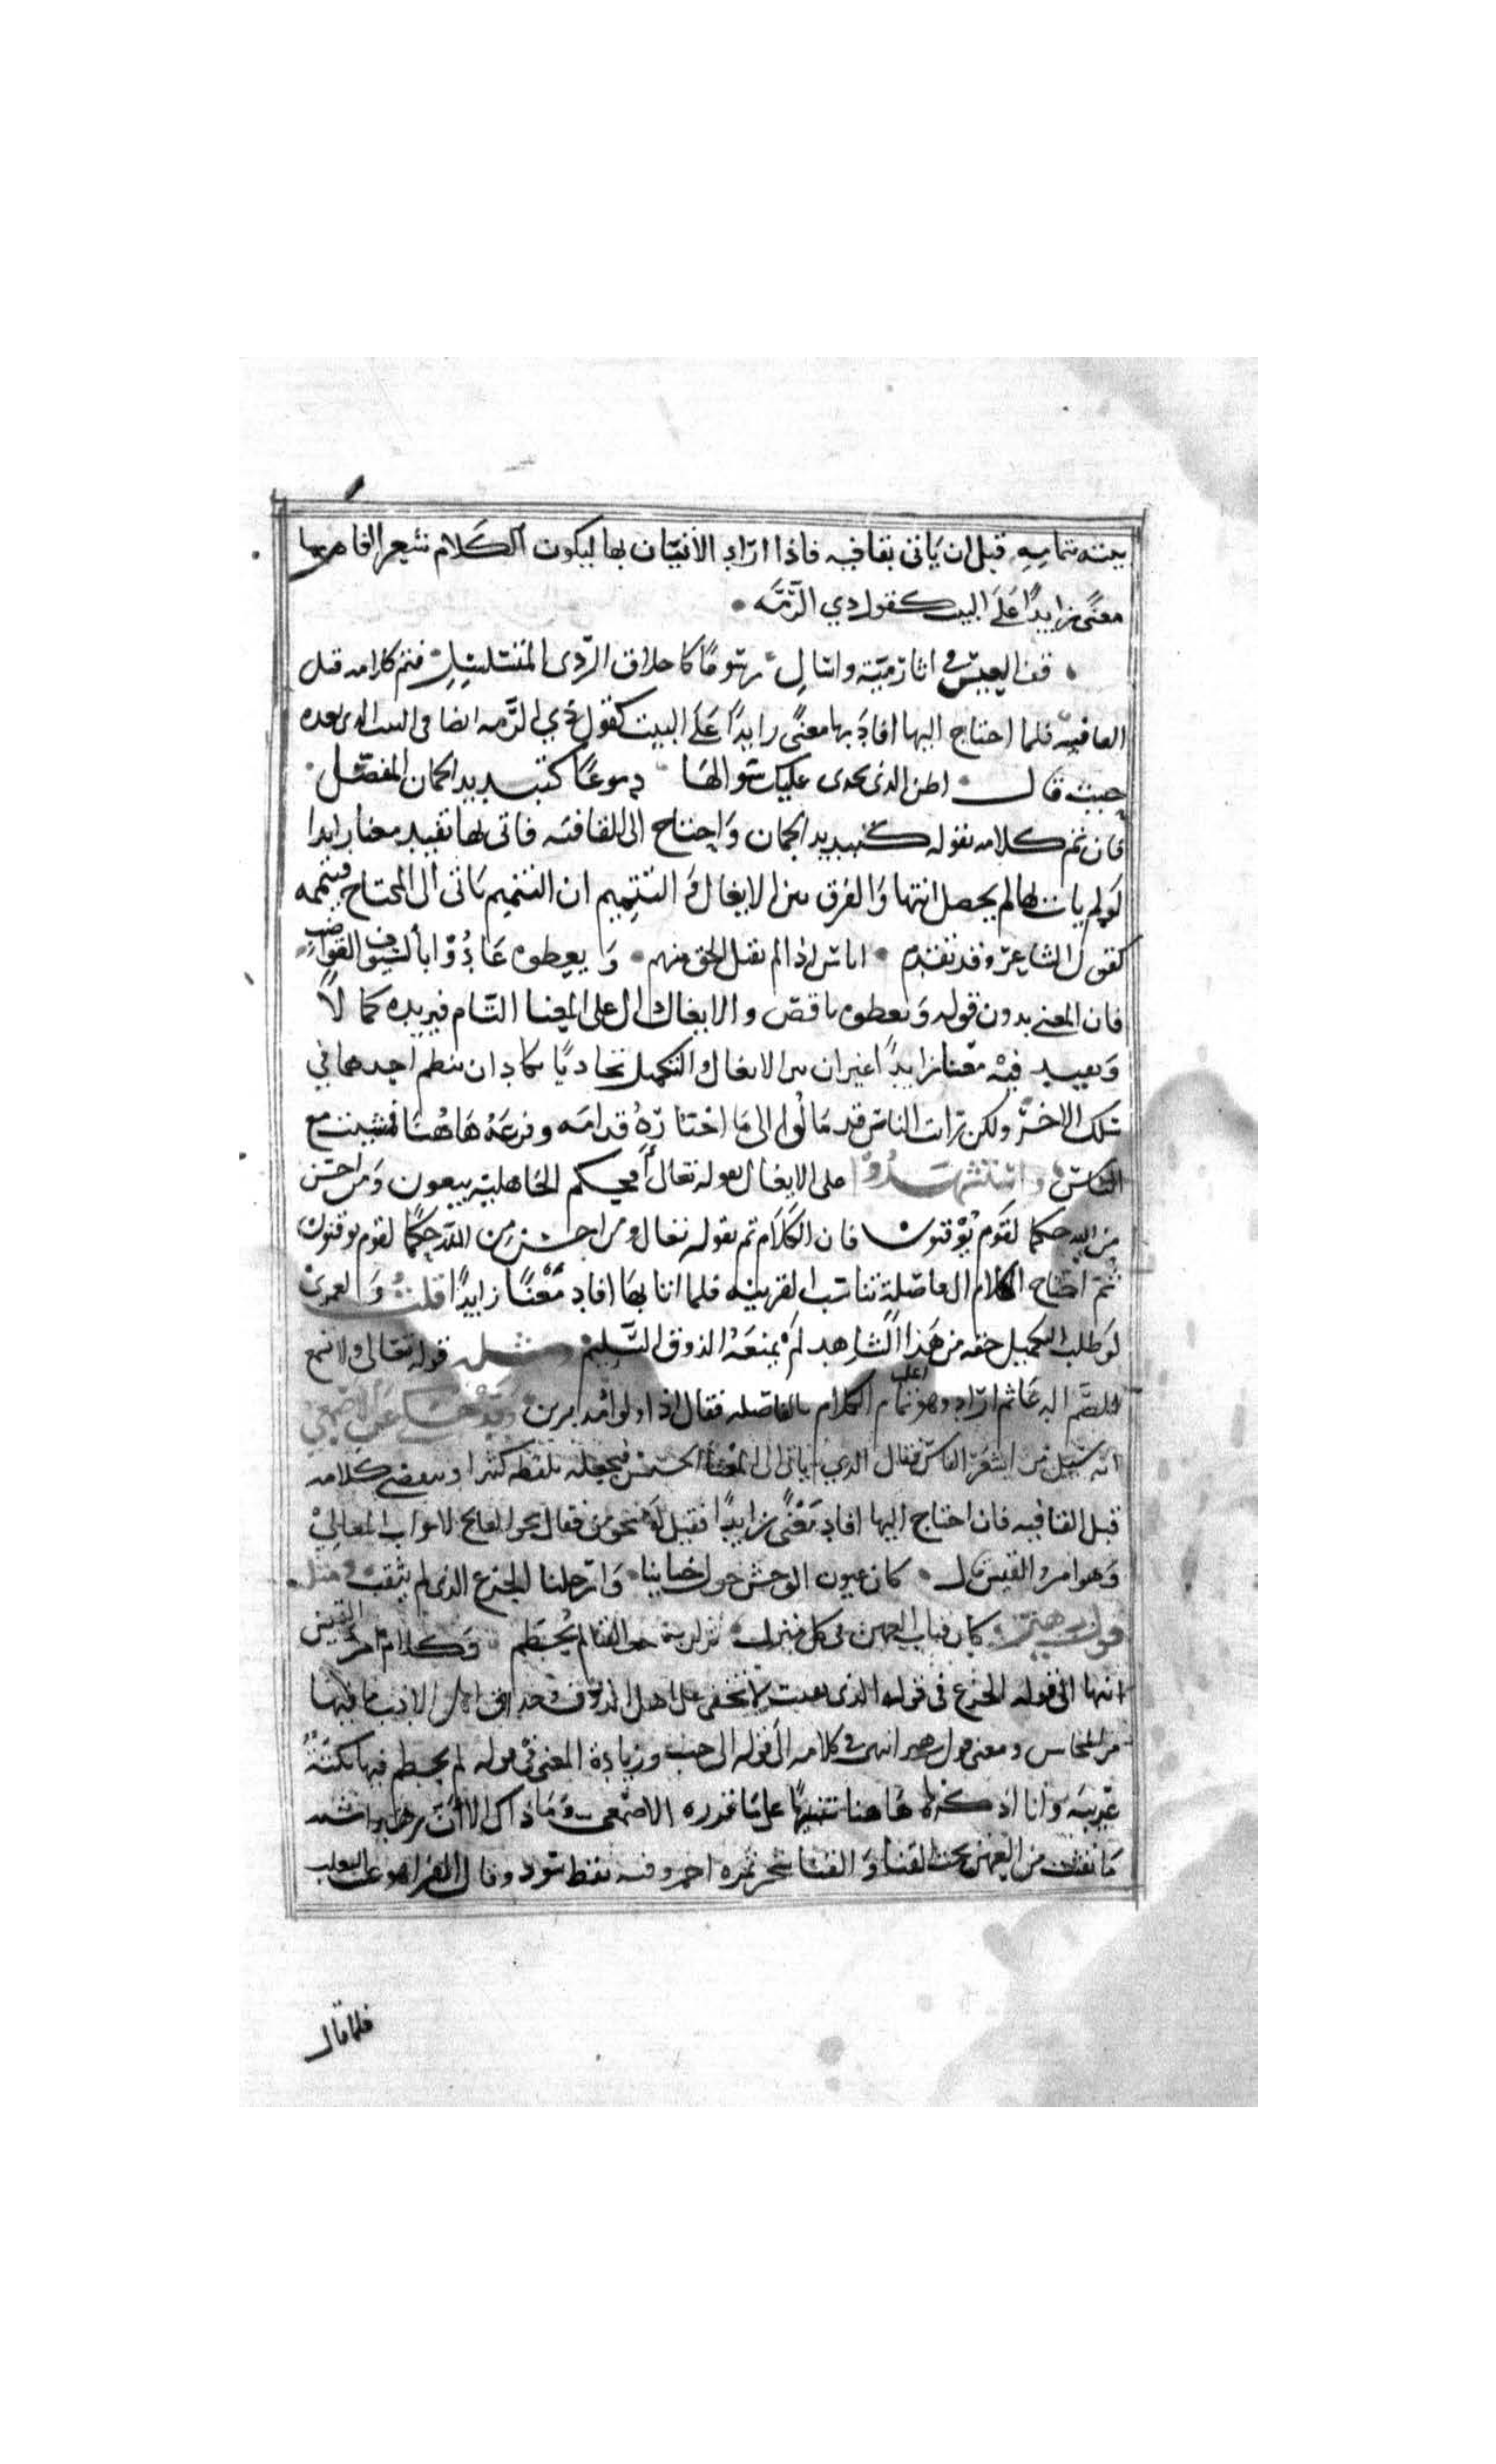 بيته بتمامه قبل ان ياتى بقافيه فاذا اراد الاتيان بها ليكون الكلام شعر افاد بها
معنًى زايدًا على البيت كقول ذي الرمه
قف العيس في اثار ميّة واسال رسومًا كاخلاق الردى المتسلسل فتم كلامه قبل
القافيه فلما احتاج اليها افاد بها معنًى زايدًا على البيت كقول ذي الرمه ايضا فى البيت الذى بعده
حيث قال اظن الذى يجدى عليك سوالها دموعًا كتبديد الجمان المفصّل
فان تم كلامه بقوله كتبديد الجمان واحتاج الى القافيه فاتى بها تفيد معنا زايدا
لو لم يات بها لم يحصل انتها والفرق بين الايغال والتتميم ان التتميم ياتى الى المحتاج فيتممه
كقول الشاعر وقد تقدم اناس اذا لم تقبل الحق منهم ويعطوه عادوا بالسيوف القواضب
فان المعنى بدون قوله ويعطوه ناقص والايغال على المعنا التام فيزيده كمالاً
ويفيد فيه معنا زايدًا غير ان بين الايغال والتكميل تجاذبًا يكاد ان ينظم احدهما في
سلك الاخر ولكن رات الناس قد مالوا الى ما اختاره قدامه وفرعه هاهنا فمشيت مع
الناس واستشهدوا على الايغال بقوله تعالى أفحكم الجاهلية يبغون ومن احسن
من الله حكما لقوم يوقنون فان الكلام تم بقوله تعالى ومن احسن من الله حكمًا لقوم يوقنون
ثم احتاج الكلام الى فاصلة تناسب القرينه فلما اتا بها افاد معنًا زايدًا قلت ولعمرى
لو طلب التكميل حقه من هذا الشاهد لم يمنعه الذوق السليم ومثله قوله تعالى ولا تسمع
الصم الدعا ثم اراد وهو اعلم تمام الكلام بالفاصله فقال اذا ولوا مدبرين وقد حكى عن الاصمعي
انه سئيل من اشعر الناس فقال الذي ياتى الى المعنا الخسيس فيجعله بلفظه كثيرا وينقضي كلامه
قبل القافيه فان احتاج اليها افاد معنًى زايدًا فقيل له نحو من فقال نحو الفاتح لابواب المعالي
وهو امرو القيس قال كان عيون الوحش حول خباينا وارحلنا الجزع الذى لم يثقب ومثل
قول زهير كان فتات العهن فى كل منزل نزلن به حب الفنا لم يحطم وكلام امرئ القيس
انتها الى قوله الجزع فى قوله الذى لم يثقب لا تخفى على اهل الذوق وحذاق اهل الادب ما فيها
من المحاسن ومعنى قول زهير انتهى في كلامه الى قوله الى حب وزيادة المعنى في قوله لم يحطم فيها نكتة
غريبة وانا اذكرها هاهنا تنبيهًا على ما قدره الاصمعى وما ذاك الا أن زهير شبه
ما تفتت من العهن بحب الفنا والفنا شجر ثمره احمر وفيه نقط سود وقال الفرا هو عنب الثعلب
فلما قال